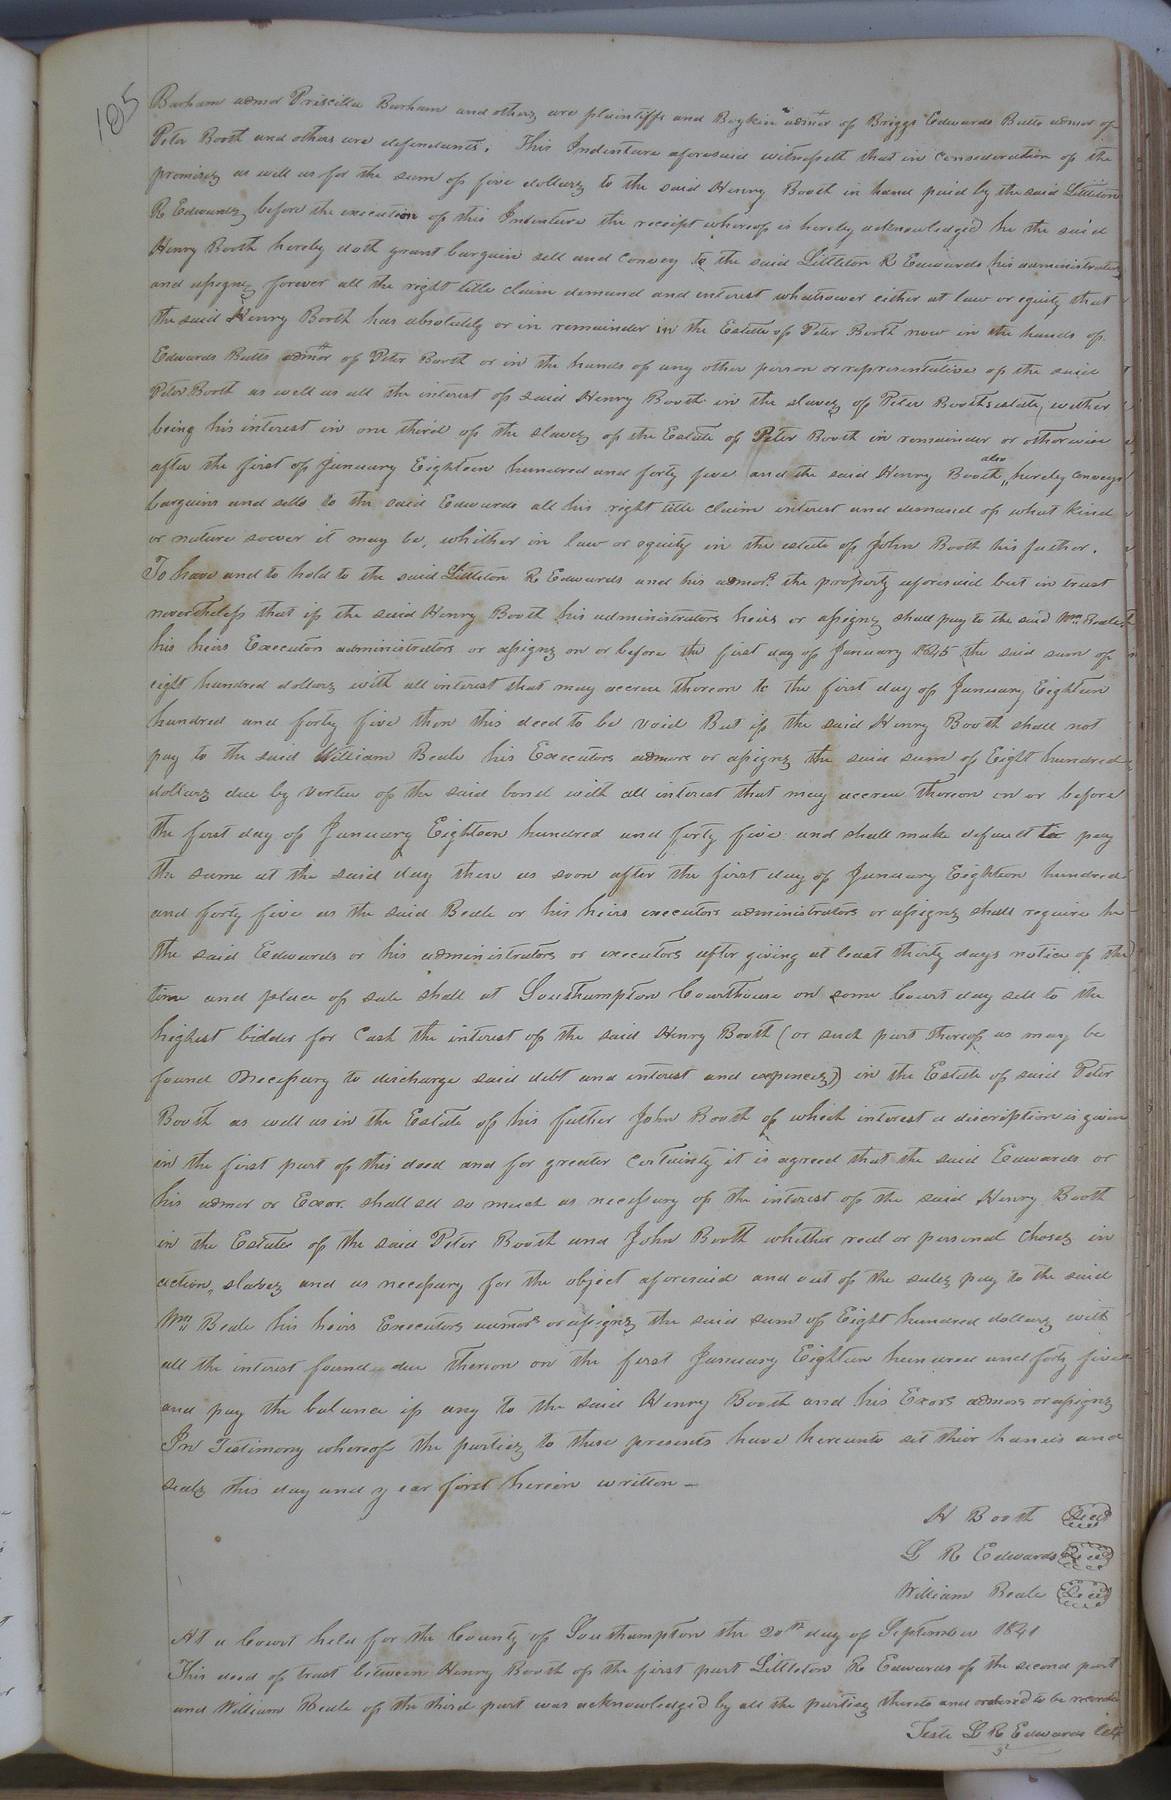 185
Barham admor Priscilla Barham and others are plaintiffs and Boykin admor of Briggs Edwards Butts admor of
Peter Booth and others are defendants. This Indenture aforesaid witnesseth that in consideration of the
promises as well as for the sum of five dollars to the said Henry Booth in hand paid by the said Littleton
R Edwards before the execution of this Indenture the receipt whereof is hereby acknowledged he the said
Henry Booth hereby doth grant bargain sell and convey to the said Littleton R Edwards his administrators
and assigns forever all the right title claim demand and interest whatsoever either at law or equity that
the said Henry Booth has absolutely or in remainder in the Estate of Peter Booth now in the hands of
Edwards Butts admor of Peter Booth or in the hands of any other person or representative of the said
Peter Booth as well as all the interest of said Henry Booth in the slaves of Peter Booths estate, wether
being his interest in one third of the slaves of the Estate of Peter Booth in remainder or otherwise
after the first of January Eighteen hundred and forty five and the said Henry Booth also hereby conveys
bargains and sells to the said Edwards all his right title claim interest and demand of what kind
or nature soever it may be, whether in law or equity in the estate of John Booth his father.
To have and to hold to the said Littleton R Edwards and his admors the property aforesaid but in trust
nevertheless that if the said Henry Booth his administrators heirs or assigns shall pay to the said Wm Beale
his heirs Executors administrators or assigns on or before the first day of January 1845 the said sum of
eight hundred dollars with all interest that may accrue thereon to the first day of January Eighteen
hundred and forty five then this deed to be void But if the said Henry Booth shall not
pay to the said William Beale his Executors admors or assigns the said sum of Eight hundred
dollars due by vertue of the said bond with all interest that may accrue thereon on or before
the first day of January Eighteen hundred and forty five and shall make default to pay
the same at the said day then as soon after the first day of January Eighteen hundred
and forty five as the said Beale or his heirs executors administrators or assigns shall require he
the said Edwards or his administrators or executors after giving at least thirty days notice of the
time and place of sale shall at Southampton Courthouse on some Court day sell to the
highest bidder for Cash the interest of the said Henry Booth (or such part thereof as may be
found necessary to discharge said debt and interest and expences) in the Estate of said Peter
Booth as well as in the Estate of his father John Booth of which interest a discription is given
in the first part of this deed and for greater Certainty it is agreed that the said Edwards or
his admor or Exor. shall sell so much as necessary of the interest of the said Henry Booth
in the Estates of the said Peter Booth and John Booth whether real or personal Choses in
action, slaves and as necessary for the object aforesaid and out of the sales pay to the said
Wm Beale his heirs Executors admors or assigns the said sum of Eight hundred dollars with
all the interest found due thereon on the first January Eighteen hundred and forty five
and pay the balance if any to the said Henry Booth and his Exors admors or assigns
In Testimony whereof the parties to these presents have hereunto set their hands and
seals this day and year first herein written -
H Booth Seal
L R Edwards Seal
William Beale Seal
At a Court held for the County of Southampton the 20th day of September 1841
This deed of trust between Henry Booth of the first part Littleton R Edwards of the second part
and William Beale of the third part was acknowledged by all the parties thereto and ordered to be recorded
Teste L R Edwards Clk